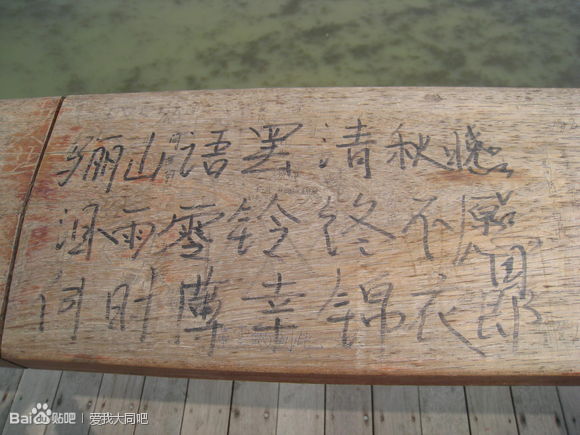 骊山语罢清秋
泪雨零铃终不愿
何时薄幸锦衣郎
Bai度贴吧 | 爱我大同吧